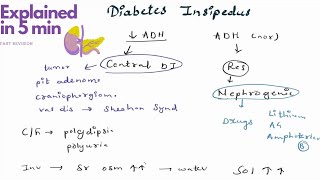 Explained
in 5 min
FAST REVISION
Diabetes Insipedus
↓ ADH
ADH (nor)
Central DI
Res
tumor
Nephrogenic
pit adenoma
craniophargioma
vas dis → Sheehan Synd
Drugs
Lithium
AG
Amphotericin
B
C/f → polydipsia
polyuria
Inv → Sr osm ↑↑ → water Sol ↑ ↑